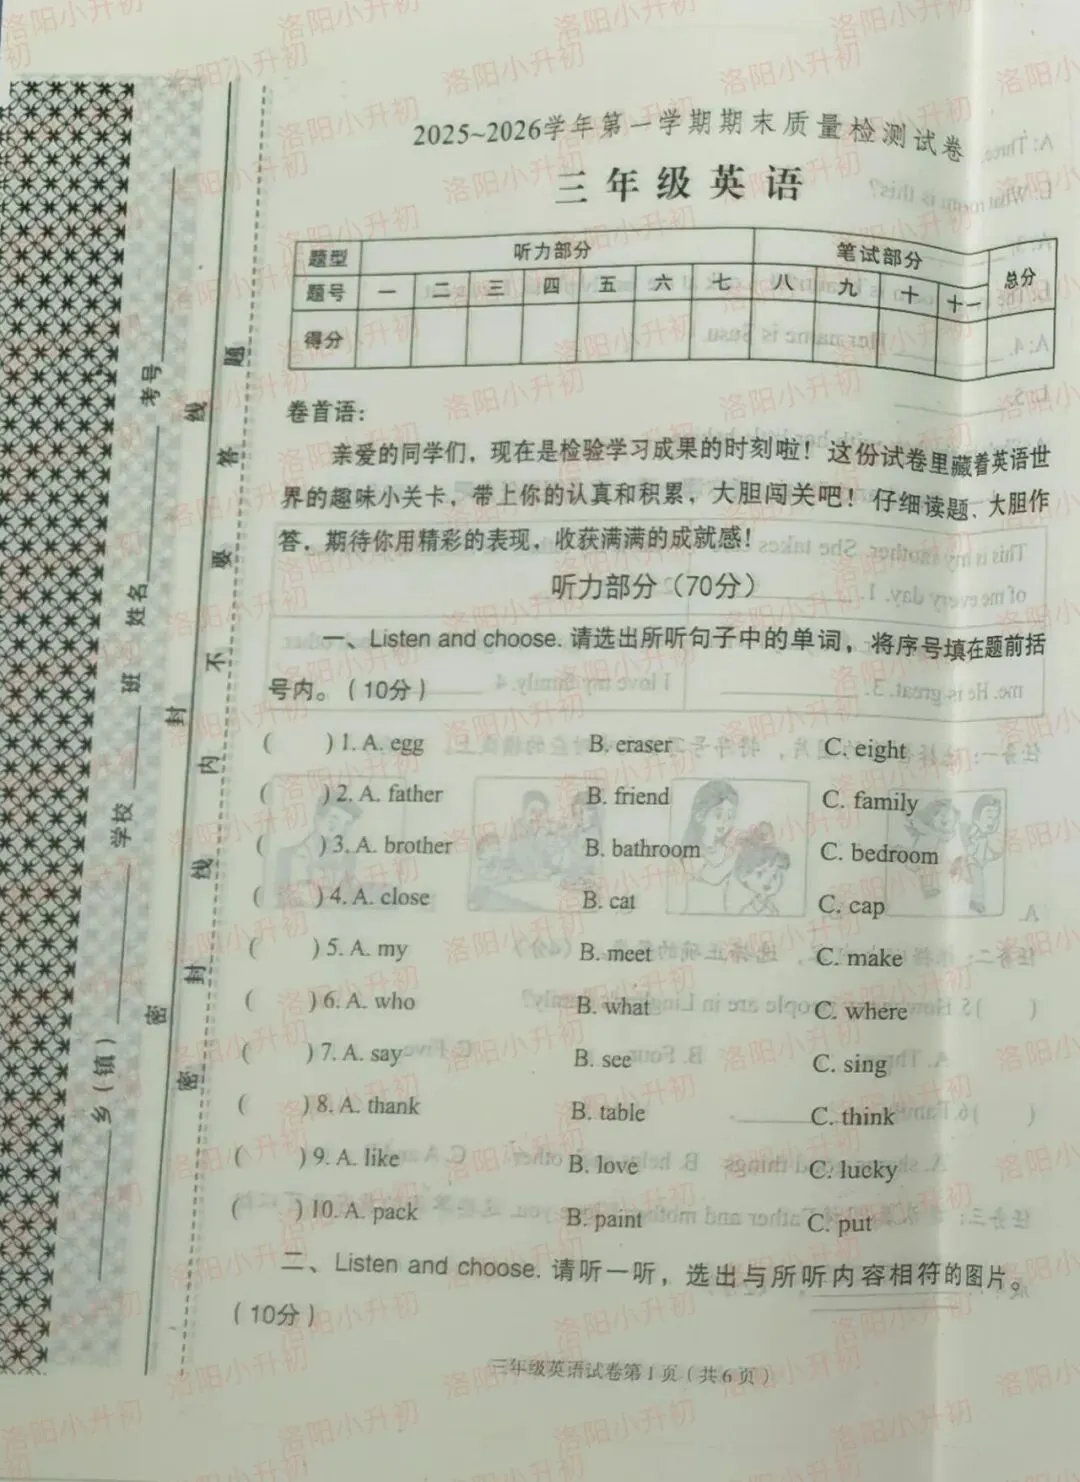 2025~2026学年第一学期期末质量检测试卷
三年级英语
题型 听力部分 笔试部分 总分
题号 一 二 三 四 五 六 七 八 九 十 十一
得分
卷首语：
亲爱的同学们，现在是检验学习成果的时刻啦！这份试卷里藏着英语世
界的趣味小关卡，带上你的认真和积累，大胆闯关吧！仔细读题、大胆作
答，期待你用精彩的表现，收获满满的成就感！
听力部分（70分）
一、Listen and choose. 请选出所听句子中的单词，将序号填在题前括
号内。（10分）
( ) 1. A. egg B. eraser C. eight
( ) 2. A. father B. friend C. family
( ) 3. A. brother B. bathroom C. bedroom
( ) 4. A. close B. cat C. cap
( ) 5. A. my B. meet C. make
( ) 6. A. who B. what C. where
( ) 7. A. say B. see C. sing
( ) 8. A. thank B. table C. think
( ) 9. A. like B. love C. lucky
( ) 10. A. pack B. paint C. put
二、Listen and choose. 请听一听，选出与所听内容相符的图片。
（10分）
三年级英语试卷第1页（共6页）
乡（镇） 学校 班 姓名 考号
密 封 线
密 封 线 内 不 要 答 题
洛阳小升初